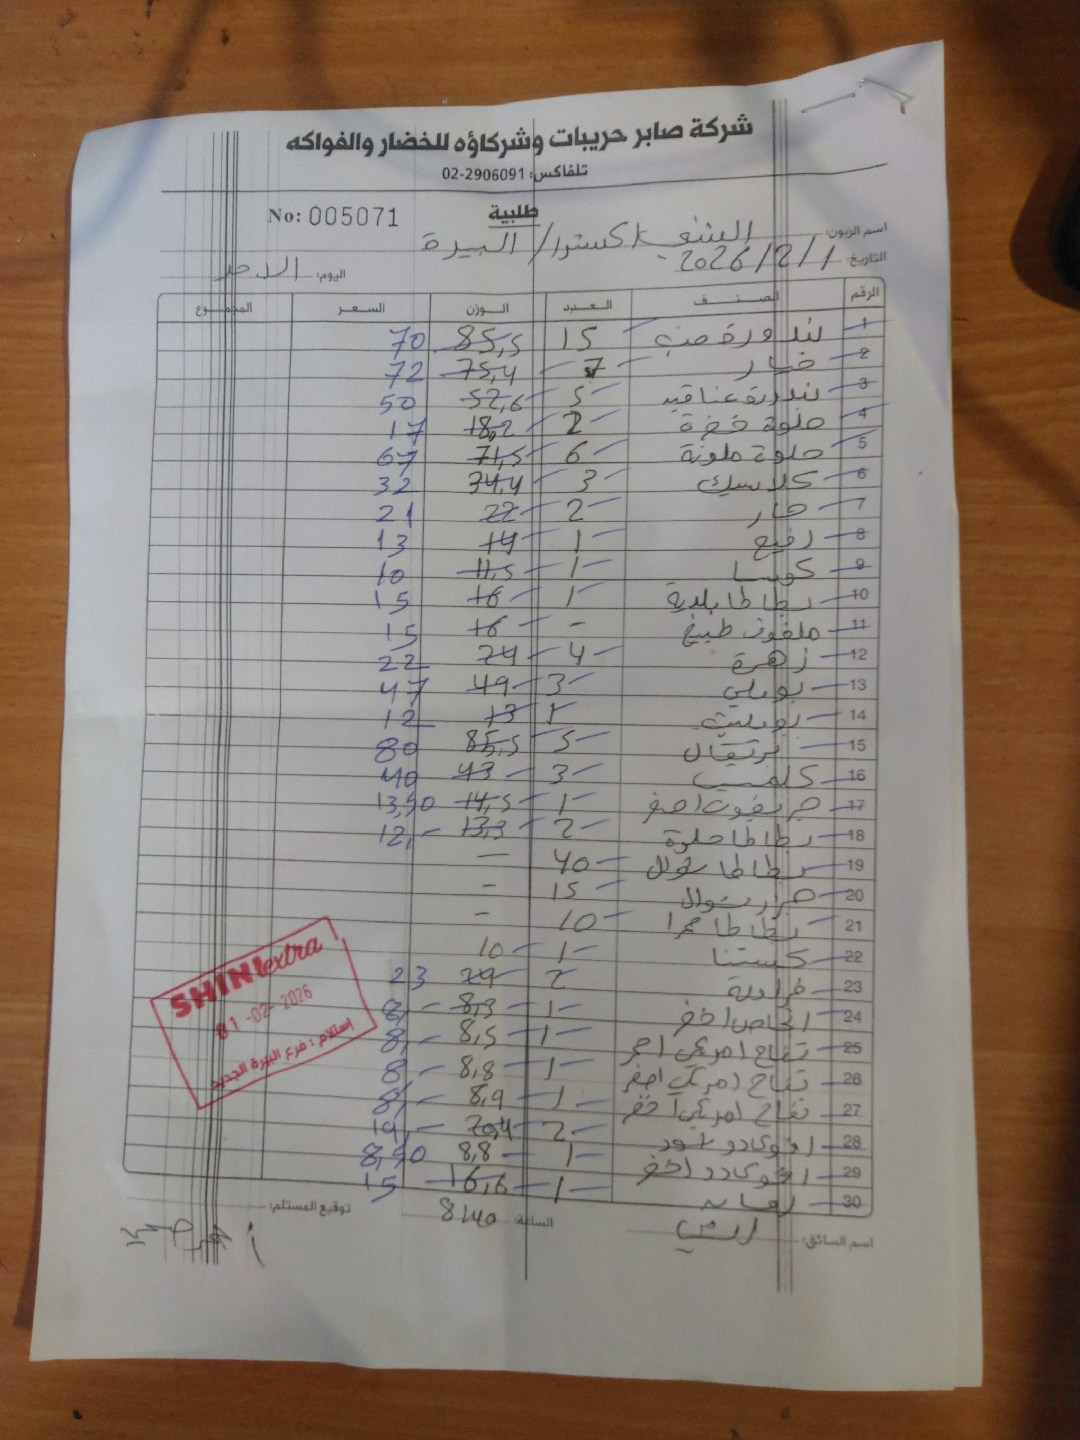 شركة صابر حريبات وشركاؤه للخضار والفواكه
تلفاكس: 02-2906091
طلبية
No: 005071
اسم الزبون: الشني اكسترا / البيرة
التاريخ: 2026/2/1 اليوم: الاحد
الرقم الصنف العدد الوزن السعر المجموع
1 بندورة 15 85,5 70
2 خيار 7 75,4 72
3 بندورة عناقيد 5 52,6 50
4 حلوة خضرة 2 18,2 17
5 حلوة ملونة 6 71,5 67
6 كلاسيك 3 34,4 32
7 حار 2 22 21
8 رفيع 1 14 13
9 كوسا 1 11,5 10
10 بطاطا بلدية 1 16 15
11 ملفوف طبيخ - 16 15
12 زهرة 4 24 22
13 بوملي 3 49 47
14 1 13 12
15 برتقال 5 85,5 80
16 كلمنتينا 3 43 40
17 جريفوت اصفر 1 14,5 13,50
18 بطاطا حلوة 2 13,3 12,-
19 بطاطا شوال 40 -
20 جزر شوال 15 -
21 بطاطا حمرا 10 -
22 كستنا 1 10
23 فراولة 2 23
24 اجاص اخضر 1 8,3 8,-
25 تفاح امريكي احمر 1 8,5 8,-
26 تفاح امريكي اصفر 1 8,8 8,-
27 تفاح امريكي اخضر 1 8,9 8,-
28 افوكادو اسود 2 20,4 19,-
29 افوكادو اخضر 1 8,8 8,50
30 1 16,6 15
SHINI extra
01-02-2026
إستلام : فرع البيرة الجديد
اسم السائق: الساعة: 8:40 توقيع المستلم: